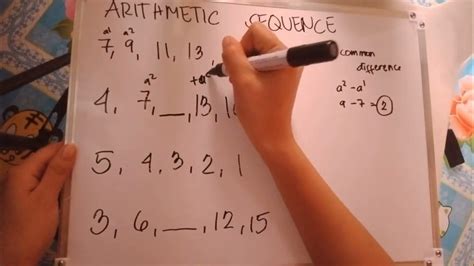 ARITHMETIC SEQUENCE
a¹ a²
7, 9, 11, 13,
common
difference
a² - a¹
9 - 7 = 2
a²
4, 7, __, 13,
5, 4, 3, 2, 1
3, 6, __, 12, 15